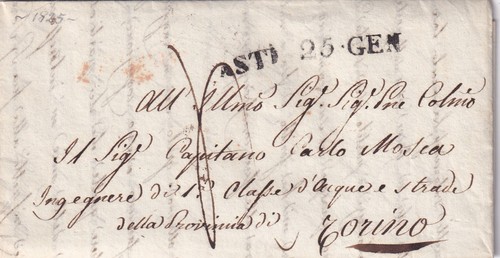 ~ 1825 ~
ASTI 25·GEN
All' Illmo Sig.r Sig.r Pne Colmo
Il Sig.r Capitano Carlo Mosca
Ingegnere di 1.a Classe d'acque e strade
della Provincia di Torino